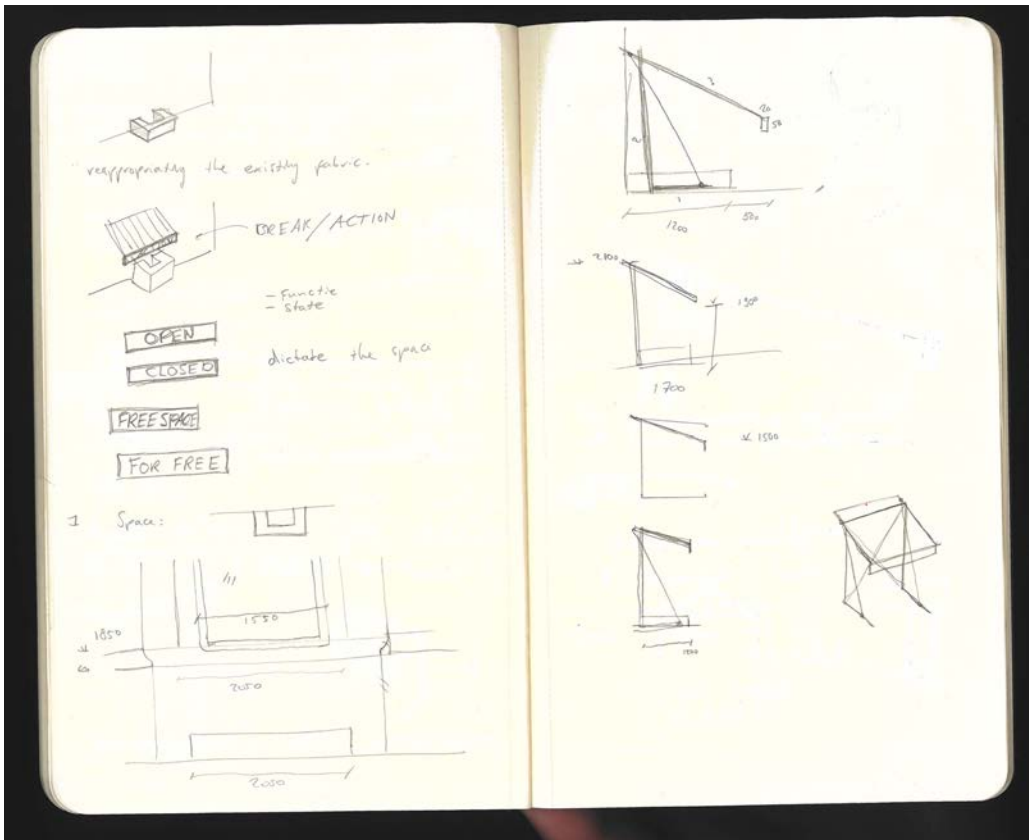 reappropriating the existing fabric.
BREAK/ACTION
- Functie
- State
OPEN
CLOSED
dictate the space
FREE SPACE
FOR FREE
1 Space:
1550
1850
2050
2050
3
20
50
2
1
1200
500
2100
1700
1500